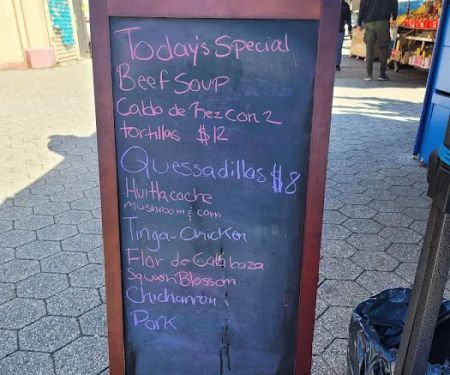 Today's Special
Beef Soup
Caldo de Rez con 2
tortillas $12
Quessadillas $8
Huitlacoche
mushroom & corn
Tinga-Chicken
Flor de Calabaza
Squash Blossom
Chicharron
Pork